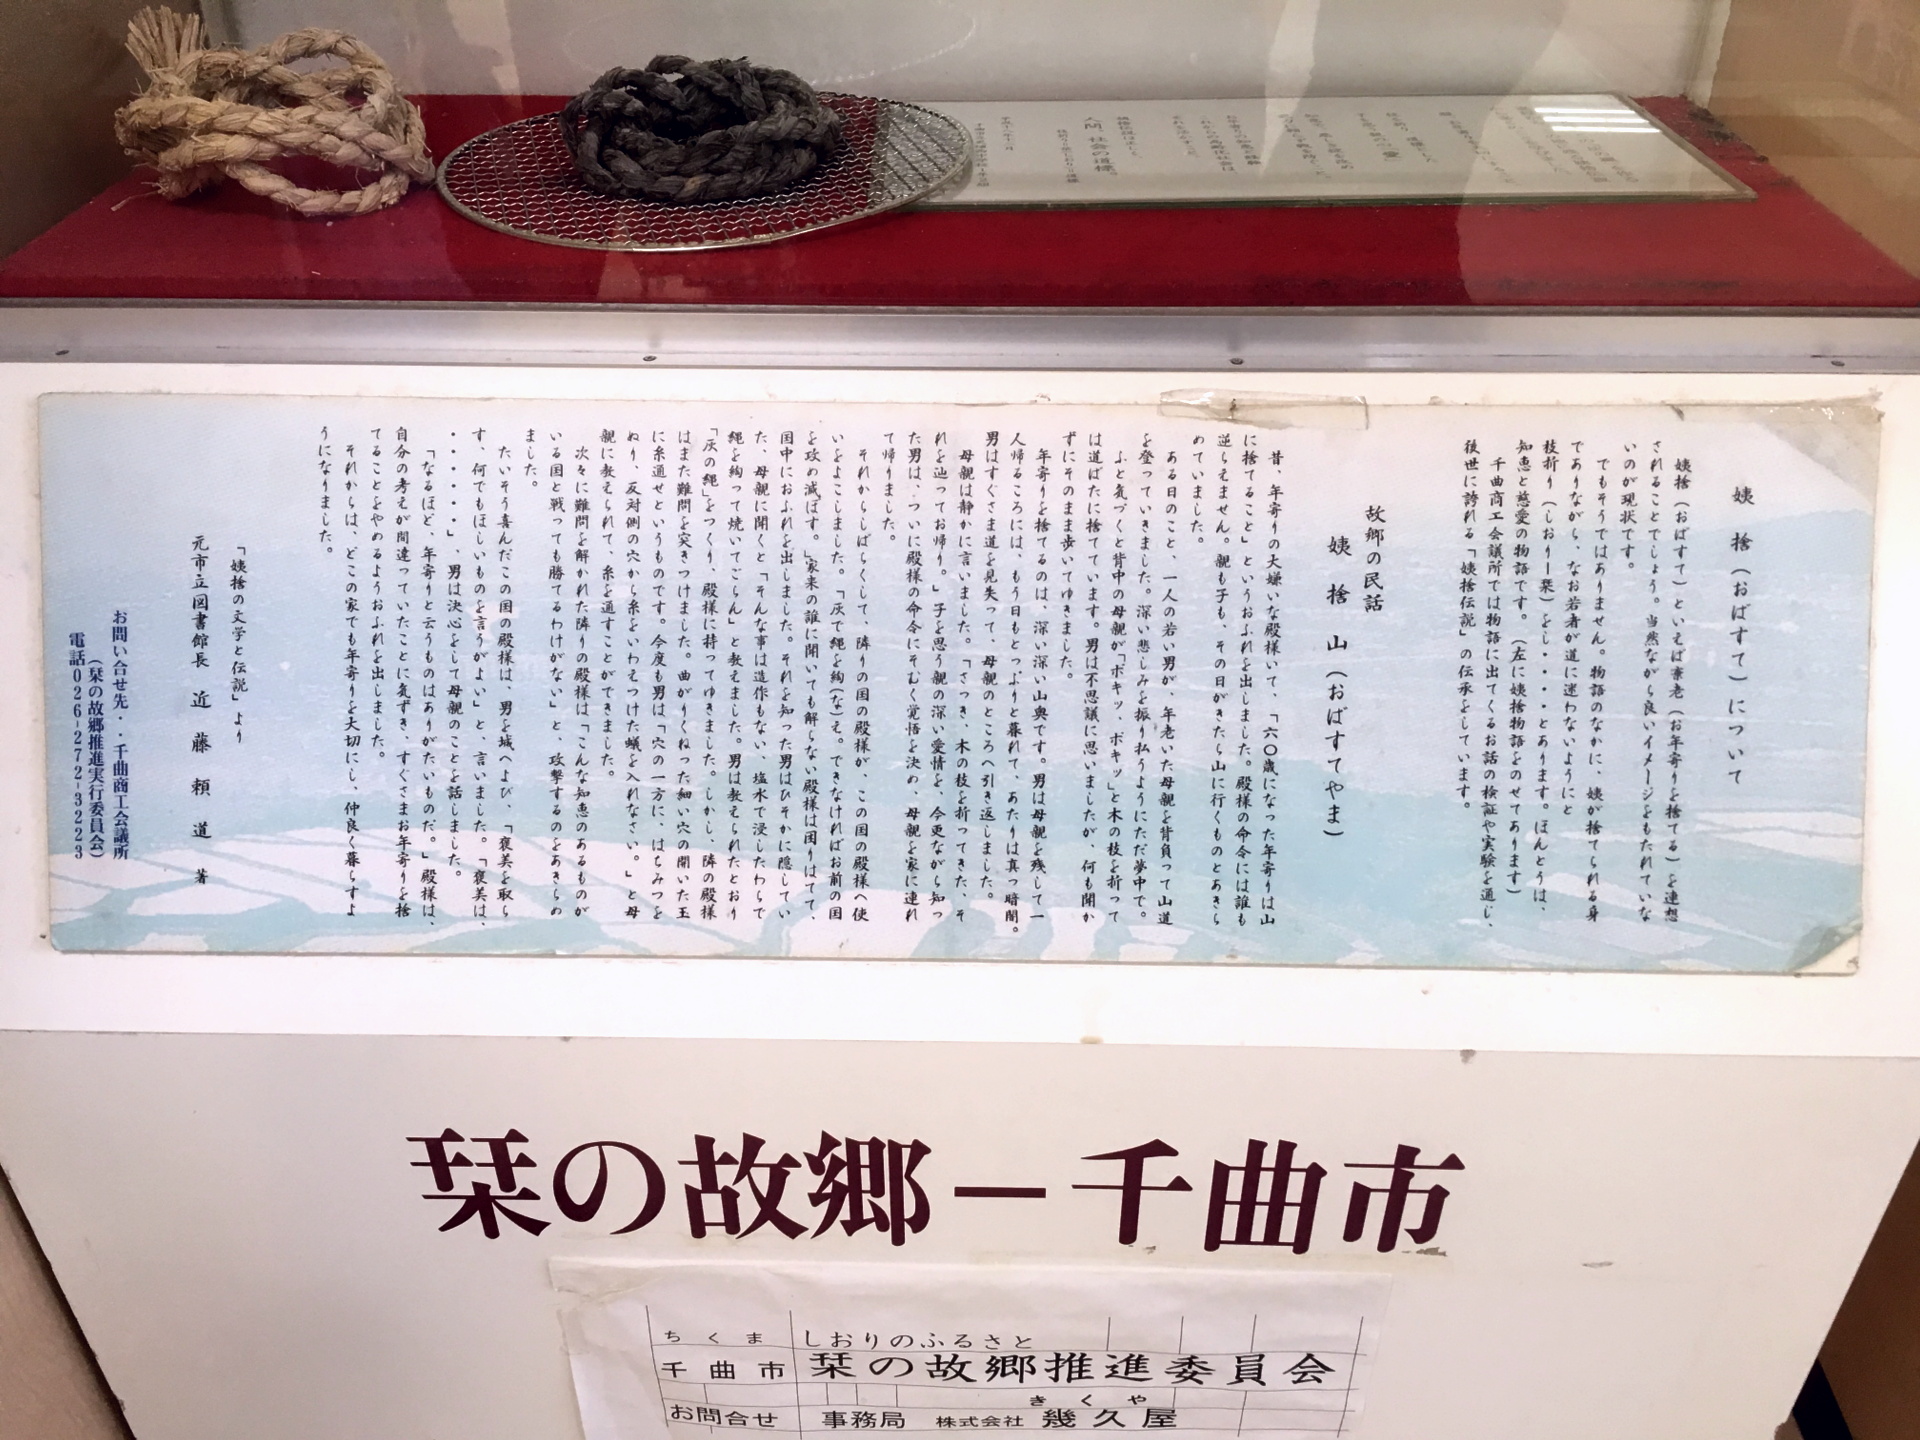 姨捨(おばすて)について
姨捨(おばすて)といえば棄老(お年寄りを捨てる)を連想
されることでしょう。当然ながら良いイメージをもたれていな
いのが現状です。
でもそうではありません。物語のなかに、姨が捨てられる身
でありながら、なお若者が道に迷わないようにと
枝折り(しおり―栞)をし・・・・とあります。ほんとうは、
知恵と慈愛の物語です。(左に姨捨物語をのせてあります)
千曲商工会議所では物語に出てくるお話の検証や実験を通じ、
後世に誇れる「姨捨伝説」の伝承をしています。
故郷の民話
姨捨山(おばすてやま)
昔、年寄りの大嫌いな殿様いて、「六〇歳になった年寄りは山
に捨てること」というおふれを出しました。殿様の命令には誰も
逆らえません。親も子も、その日がきたら山に行くものとあきら
めていました。
ある日のこと、一人の若い男が、年老いた母親を背負って山道
を登っていきました。深い悲しみを振り払うようにただ夢中で。
ふと気づくと背中の母親が「ポキッ、ポキッ」と木の枝を折って
は道ばたに捨てています。男は不思議に思いましたが、何も聞か
ずにそのまま歩いてゆきました。
年寄りを捨てるのは、深い深い山奥です。男は母親を残して一
人帰るころには、もう日もとっぷりと暮れて、あたりは真っ暗闇。
男はすぐさま道を見失って、母親のところへ引き返しました。
母親は静かに言いました。「さっき、木の枝を折ってきた、そ
れを辿ってお帰り。」子を思う親の深い愛情を、今更ながら知っ
た男は、ついに殿様の命令にそむく覚悟を決め、母親を家に連れ
て帰りました。
それからしばらくして、隣りの国の殿様が、この国の殿様へ使
いをよこしました。「灰で縄を綯(な)え。できなければお前の国
を攻め滅ぼす。」家来の誰に聞いても解らない殿様は困りはてて、
国中におふれを出しました。それを知った男はひそかに隠してい
た、母親に聞くと「そんな事は造作もない、塩水で浸したわらで
縄を綯って焼いてごらん」と教えました。男は教えられたとおり
「灰の縄」をつくり、殿様に持ってゆきました。しかし、隣の殿様
はまた難問を突きつけました。曲がりくねった細い穴の開いた玉
に糸通せというものです。今度も男は「穴の一方に、はちみつを
ぬり、反対側の穴から糸をいわえつけた蟻を入れなさい。」と母
親に教えられて、糸を通すことができました。
次々に難問を解かれた隣りの殿様は「こんな知恵のあるものが
いる国と戦っても勝てるわけがない」と、攻撃するのをあきらめ
ました。
たいそう喜んだこの国の殿様は、男を城へよび、「褒美を取ら
す、何でもほしいものを言うがよい」と、言いました。「褒美は、
・・・・・」、男は決心をして母親のことを話しました。
「なるほど、年寄りと云うものはありがたいものだ。」殿様は、
自分の考えが間違っていたことに気ずき、すぐさまお年寄りを捨
てることをやめるようおふれを出しました。
それからは、どこの家でも年寄りを大切にし、仲良く暮らすよ
うになりました。
「姨捨の文学と伝説」より
元市立図書館長 近藤頼道 著
お問い合せ先・・千曲商工会議所
(栞の故郷推進実行委員会)
電話026-272-3223
栞の故郷ー千曲市
ちくま しおりのふるさと
千曲市 栞の故郷推進委員会
きくや
お問合せ 事務局 株式会社 幾久屋